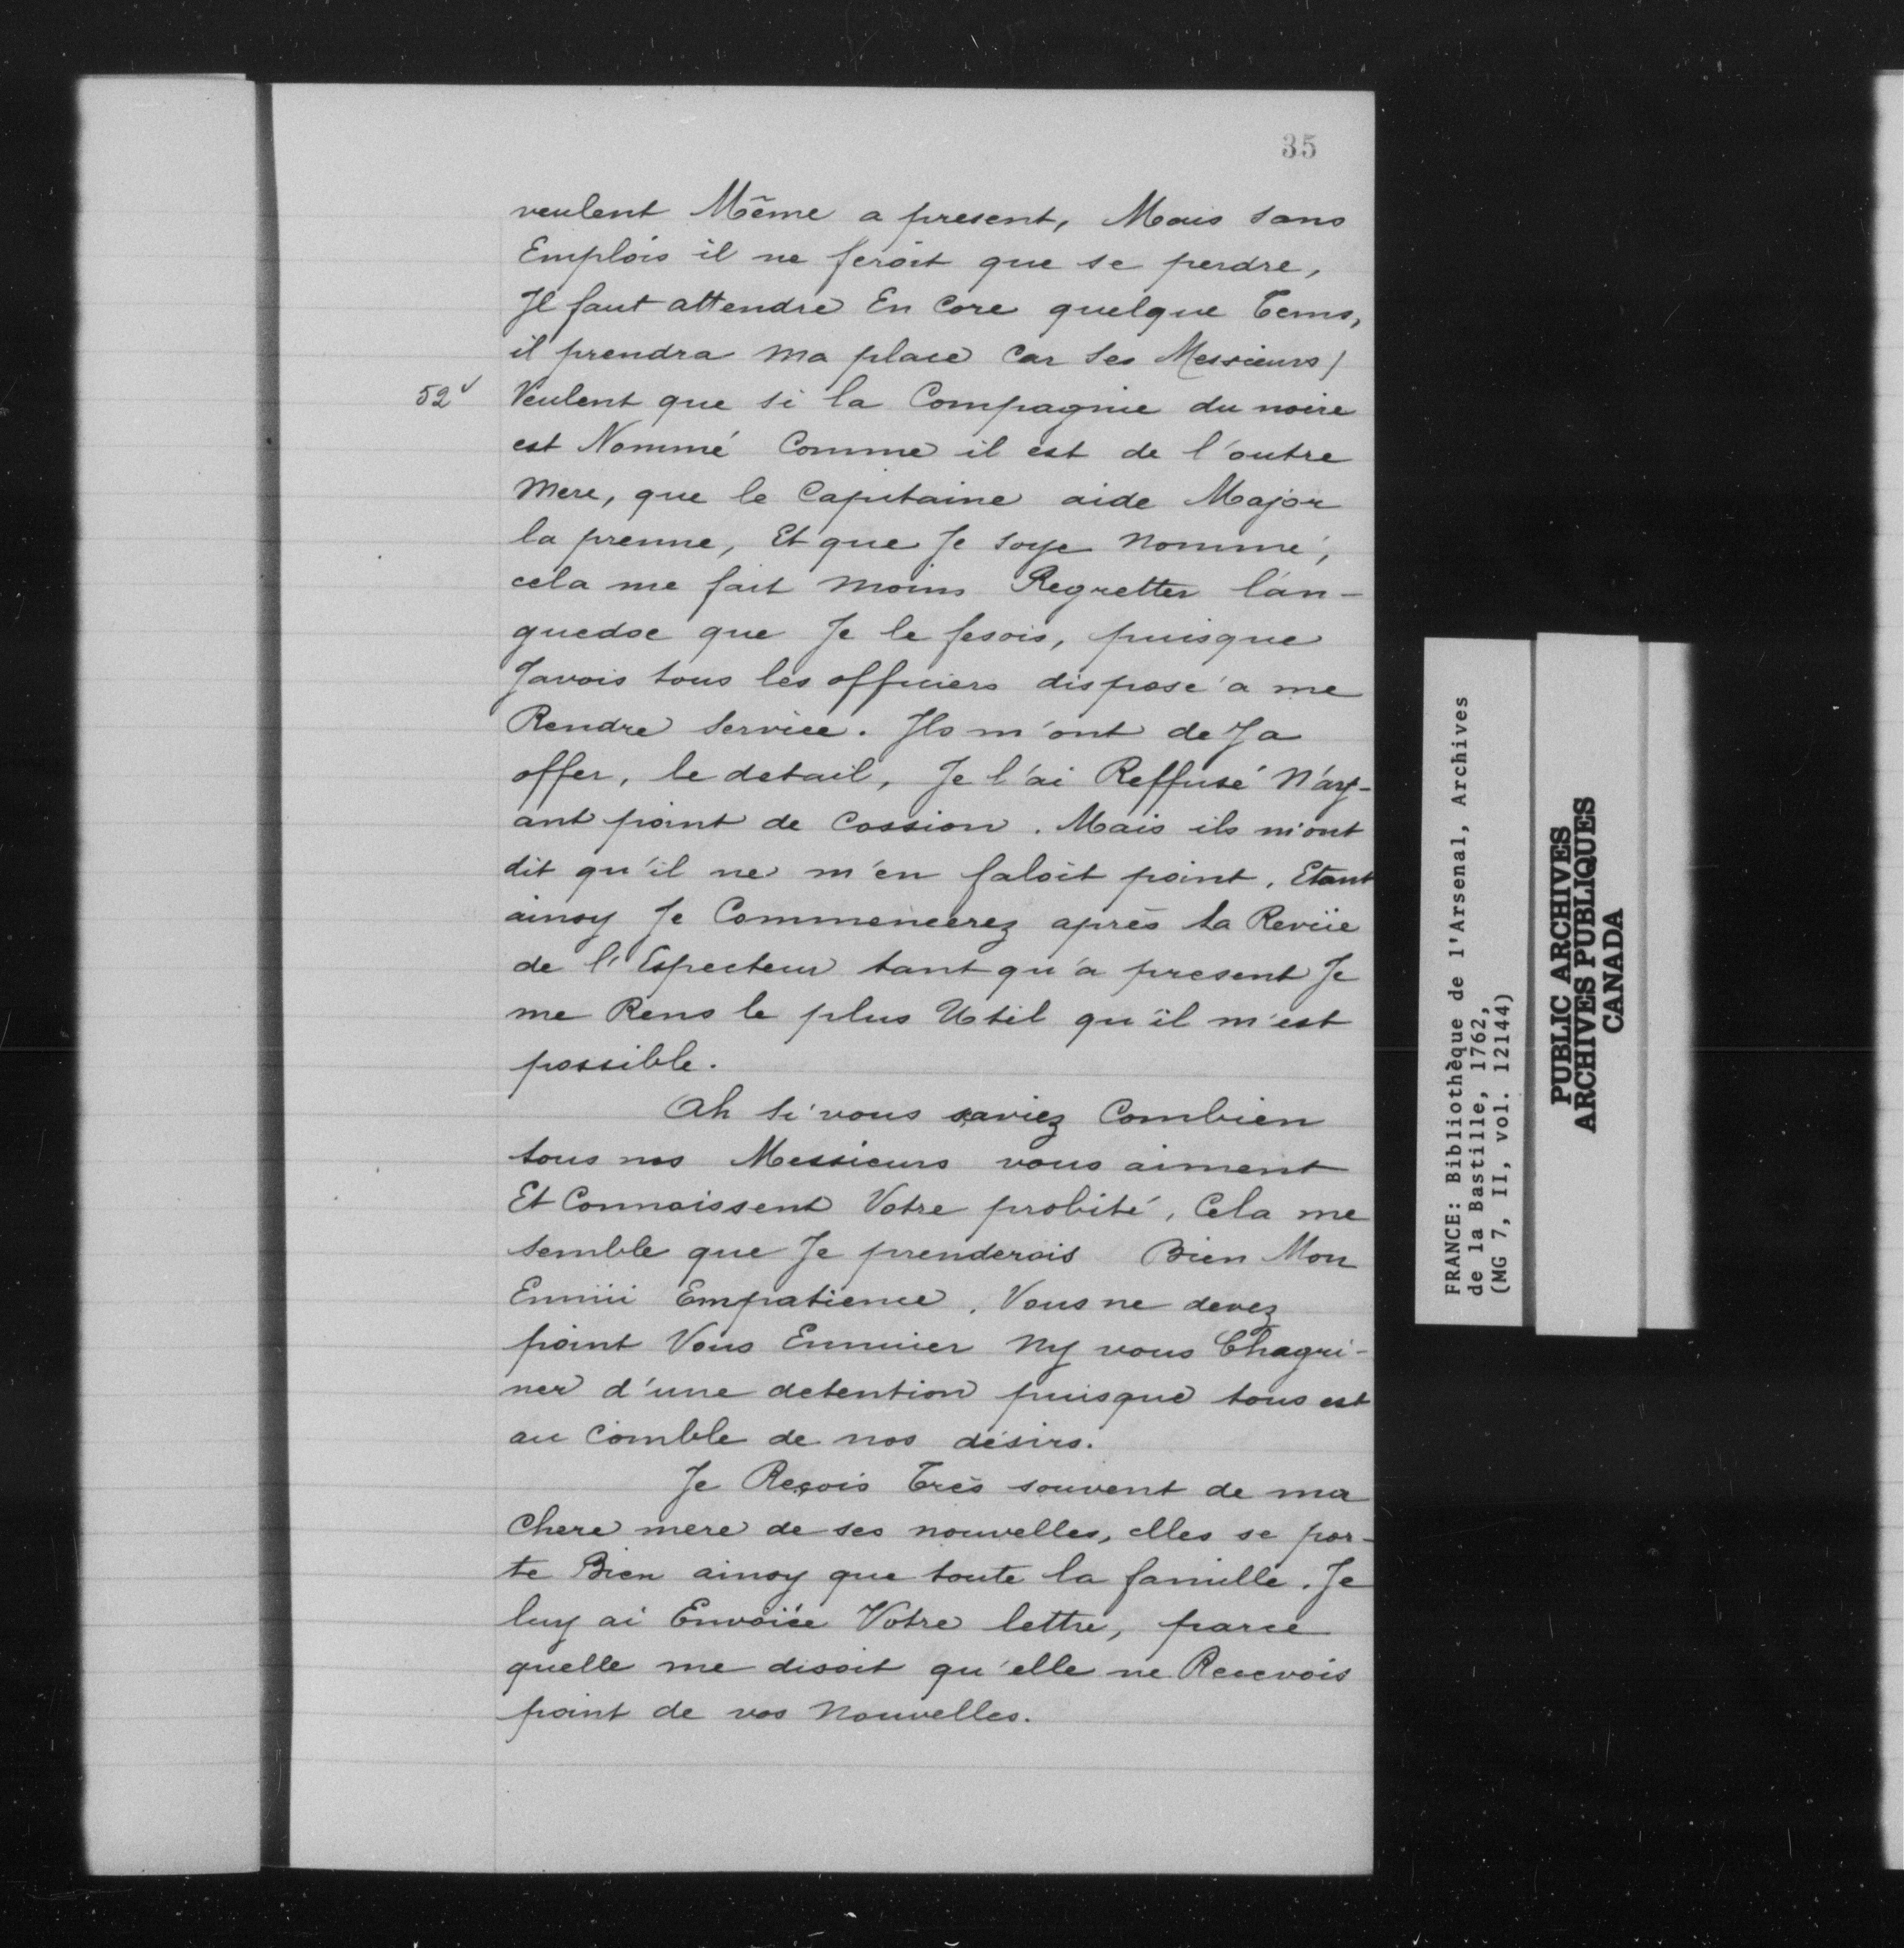 35
veulent Même a present, Mais sans
Emplois il ne feroit que se perdre,
Il faut attendre En Core quelque Tems,
il prendra Ma place Car ses Messieurs /
52v Veulent que si la Compagnie du noire
est Nommé Comme il est de l'outre
Mere, que le Capitaine aide Major
la prenne, Et que Je soye nommé,
cela me fait moins Regretter l'an-
guedoc que Je le fesois, puisque
Javois tous les officiers disposé a me
Rendre service. Ils m'ont de Ja
offer, le detail, Je l'ai Reffusé N'ay-
ant point de Cossion. Mais ils m'ont
dit qu'il ne m'en faloit point, Etant
ainsy Je Commencerez après la Revüe
de l'Especteur tant qu'a present Je
me Rens le plus Util qu'il m'est
possible.
Ah si vous saviez Combien
tous nos Messieurs vous aiment
Et Connaissent Votre probité, Cela me
semble que Je prenderois Bien Mon
Ennüi Empatience. Vous ne devez
point Vous Ennuier Ny vous Chagri-
ner d'une detention puisque tous est
au Comble de nos désirs.
Je Reçois Très souvent de ma
Chere mere de ses nouvelles, elles se por-
te Bien ainsy que toute la famille. Je
luy ai Envoiée Votre lettre, parce
quelle me disoit qu'elle ne Recevois
point de vos Nouvelles.
FRANCE: Bibliothèque de l'Arsenal, Archives
de la Bastille, 1762,
(MG 7, II, vol. 12144)
PUBLIC ARCHIVES
ARCHIVES PUBLIQUES
CANADA